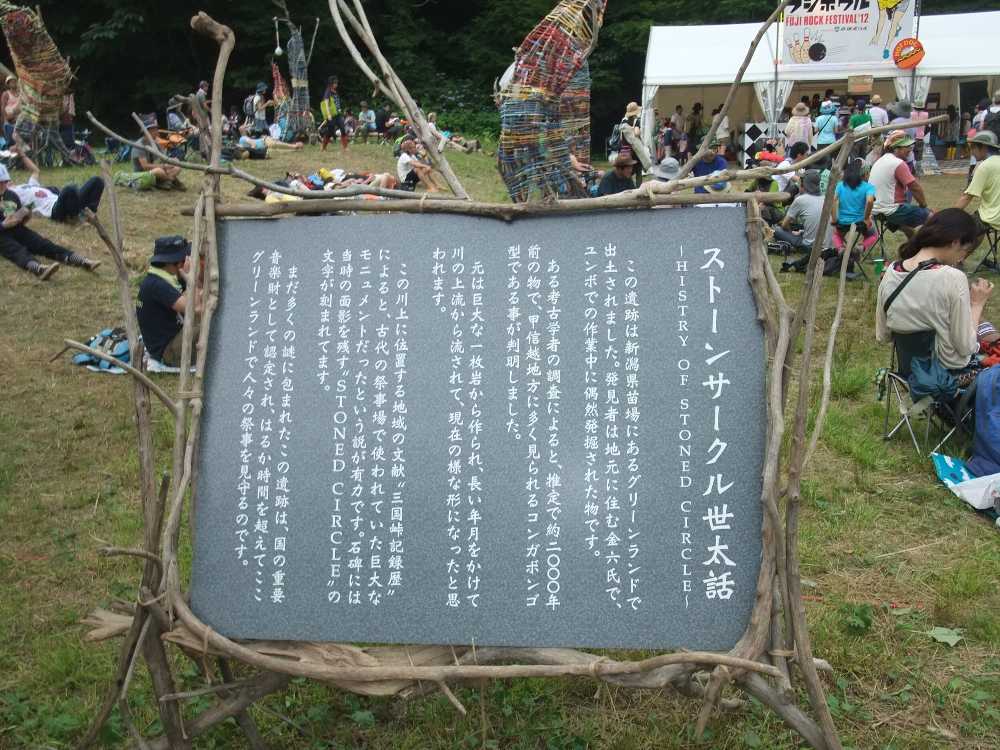 ストーンサークル世太話
～HISTRY OF STONED CIRCLE～
この遺跡は新潟県苗場にあるグリーンランドで
出土されました。発見者は地元に住む金六氏で、
ユンボでの作業中に偶然発掘された物です。
ある考古学者の調査によると、推定で約二〇〇〇年
前の物で、甲信越地方に多く見られるコンガボンゴ
型である事が判明しました。
元は巨大な一枚岩から作られ、長い年月をかけて
川の上流から流されて、現在の様な形になったと思
われます。
この川上に位置する地域の文献“三国峠記録歴”
によると、古代の祭事場で使われていた巨大な
モニュメントだったという説が有力です。石碑には
当時の面影を残す“STONED CIRCLE”の
文字が刻まれてます。
まだ多くの謎に包まれたこの遺跡は、国の重要
音楽財として認定され、はるか時間を超えてここ
グリーンランドで人々の祭事を見守るのです。
FUJI ROCK FESTIVAL'12
HOT DOG